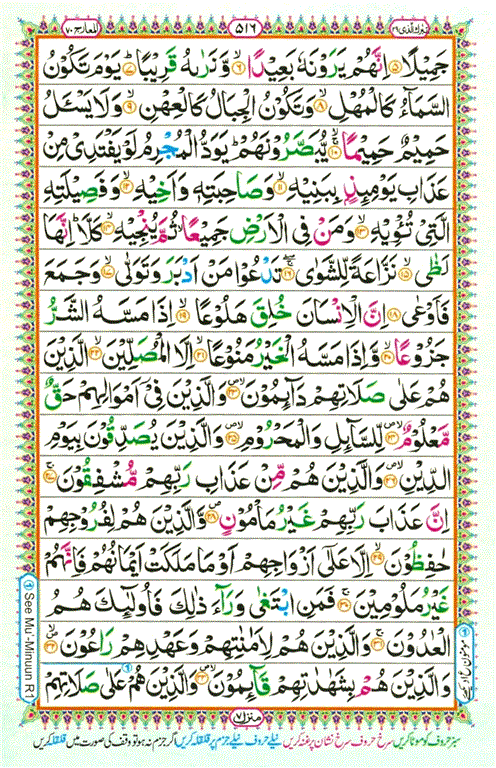 تبٰرک الذی ۲۹ ۵۱۶ المعارج ۷۰
جَمِيْلًا ۝۵ اِنَّهُمْ يَرَوْنَهٗ بَعِيْدًا ۝۶ وَّنَرٰىهُ قَرِيْبًا ۝۷ يَوْمَ تَكُوْنُ
السَّمَآءُ كَالْمُهْلِ ۝۸ وَتَكُوْنُ الْجِبَالُ كَالْعِهْنِ ۝۹ وَلَا يَسْـَٔلُ
حَمِيْمٌ حَمِيْمًا ۝۱۰ يُّبَصَّرُوْنَهُمْ ؕ يَوَدُّ الْمُجْرِمُ لَوْ يَفْتَدِيْ مِنْ
عَذَابِ يَوْمِىِٕذٍۭ بِبَنِيْهِ ۝۱۱ وَصَاحِبَتِهٖ وَاَخِيْهِ ۝۱۲ وَفَصِيْلَتِهِ
الَّتِيْ تُـْٔوِيْهِ ۝۱۳ وَمَنْ فِي الْاَرْضِ جَمِيْعًا ۙ ثُمَّ يُنْجِيْهِ ۝۱۴ كَلَّا ؕ اِنَّهَا
لَظٰى ۝۱۵ نَزَّاعَةً لِّلشَّوٰى ۝۱۶ تَدْعُوْا مَنْ اَدْبَرَ وَتَوَلّٰى ۝۱۷ وَجَمَعَ
فَاَوْعٰى ۝۱۸ اِنَّ الْاِنْسَانَ خُلِقَ هَلُوْعًا ۝۱۹ اِذَا مَسَّهُ الشَّرُّ
جَزُوْعًا ۝۲۰ وَّاِذَا مَسَّهُ الْخَيْرُ مَنُوْعًا ۝۲۱ اِلَّا الْمُصَلِّيْنَ ۝۲۲ الَّذِيْنَ
هُمْ عَلٰى صَلَاتِهِمْ دَآىِٕمُوْنَ ۝۲۳ وَالَّذِيْنَ فِيْٓ اَمْوَالِهِمْ حَقٌّ
مَّعْلُوْمٌ ۝۲۴ لِّلسَّآىِٕلِ وَالْمَحْرُوْمِ ۝۲۵ وَالَّذِيْنَ يُصَدِّقُوْنَ بِيَوْمِ
الدِّيْنِ ۝۲۶ وَالَّذِيْنَ هُمْ مِّنْ عَذَابِ رَبِّهِمْ مُّشْفِقُوْنَ ۝۲۷
اِنَّ عَذَابَ رَبِّهِمْ غَيْرُ مَاْمُوْنٍ ۝۲۸ وَالَّذِيْنَ هُمْ لِفُرُوْجِهِمْ
حٰفِظُوْنَ ۝۲۹ اِلَّا عَلٰٓى اَزْوَاجِهِمْ اَوْ مَا مَلَكَتْ اَيْمَانُهُمْ فَاِنَّهُمْ
غَيْرُ مَلُوْمِيْنَ ۝۳۰ فَمَنِ ابْتَغٰى وَرَآءَ ذٰلِكَ فَاُولٰٓىِٕكَ هُمُ
الْعٰدُوْنَ ۝۳۱ وَالَّذِيْنَ هُمْ لِاَمٰنٰتِهِمْ وَعَهْدِهِمْ رٰعُوْنَ ۝۳۲
وَالَّذِيْنَ هُمْ بِشَهٰدٰتِهِمْ قَآىِٕمُوْنَ ۝۳۳ وَالَّذِيْنَ هُمْ عَلٰى صَلَاتِهِمْ
See Mu-Minuun R1
منزل ۷
سبز حروف کو موٹا کریں سرخ حروف سرخ نشان پر غنہ کریں نیلے حروف نیلے جزم پر قلقلہ کریں اگر جزم نہ ہو تو وقف کی صورت میں قلقلہ کریں